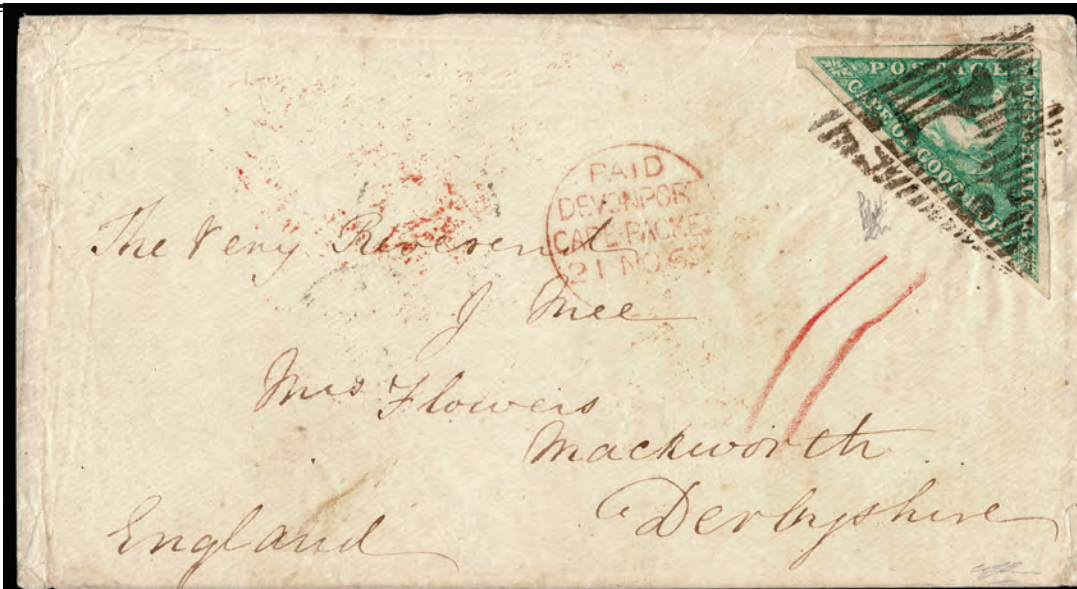 POSTAGE
CAPE OF GOOD HOPE
PAID
DEVONPORT
CAPE-PACKET
21 NO 6
The Very Reverent
J Mee
Mrs Flowers
Mackworth
Derbyshire
England